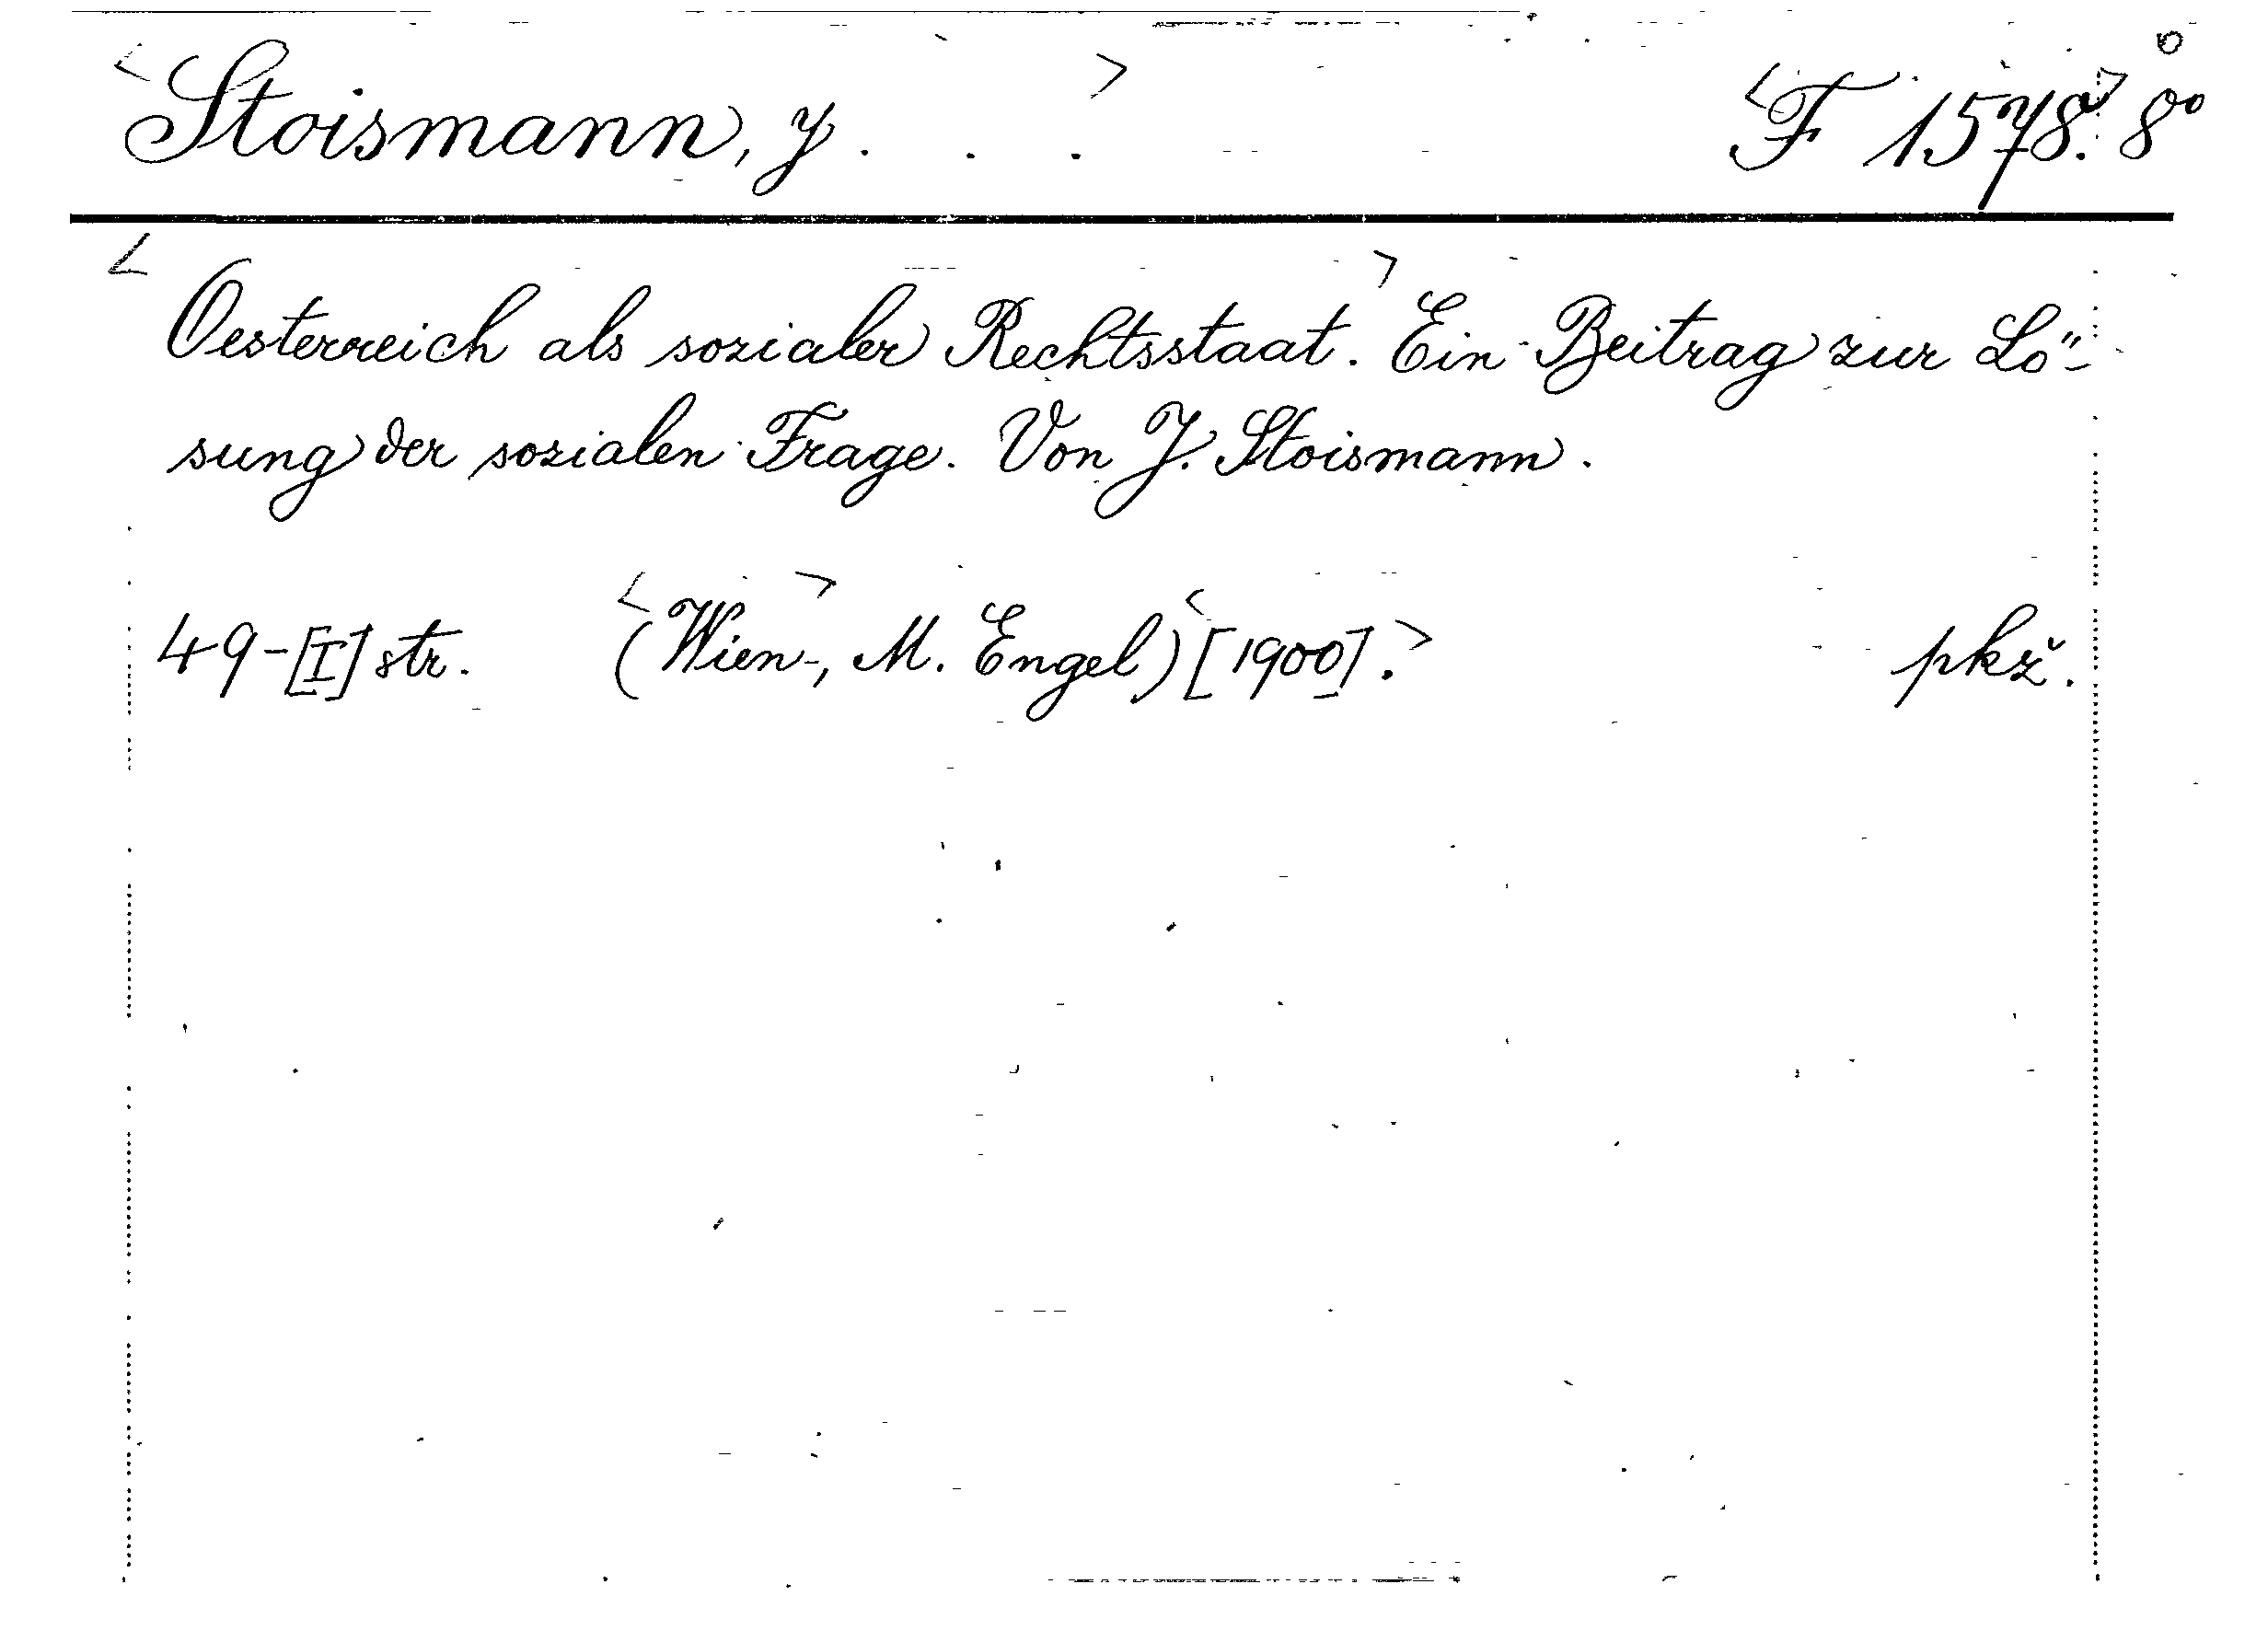 <Stoismann, J. . .> <F 1578.> 8°
<Oesterreich als sozialer Rechtsstaat.> Ein Beitrag zur Lö-
sung der sozialen Frage. Von J. Stoismann.
49-[I] str. (<Wien>, M. Engel) <[1900].> pkž.